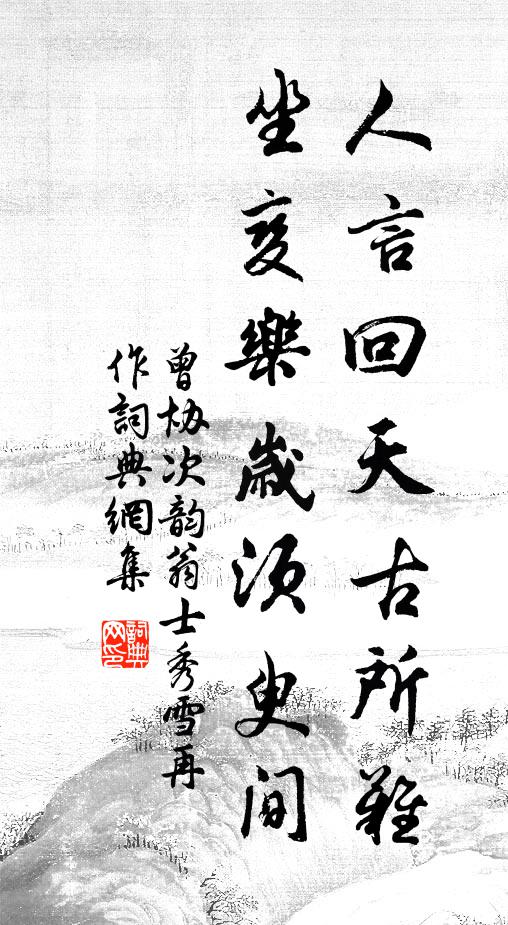 人言回天古所難
坐變樂歲須臾間
曾協次韵翁士秀雪再
作詞典網集
詞典
网印